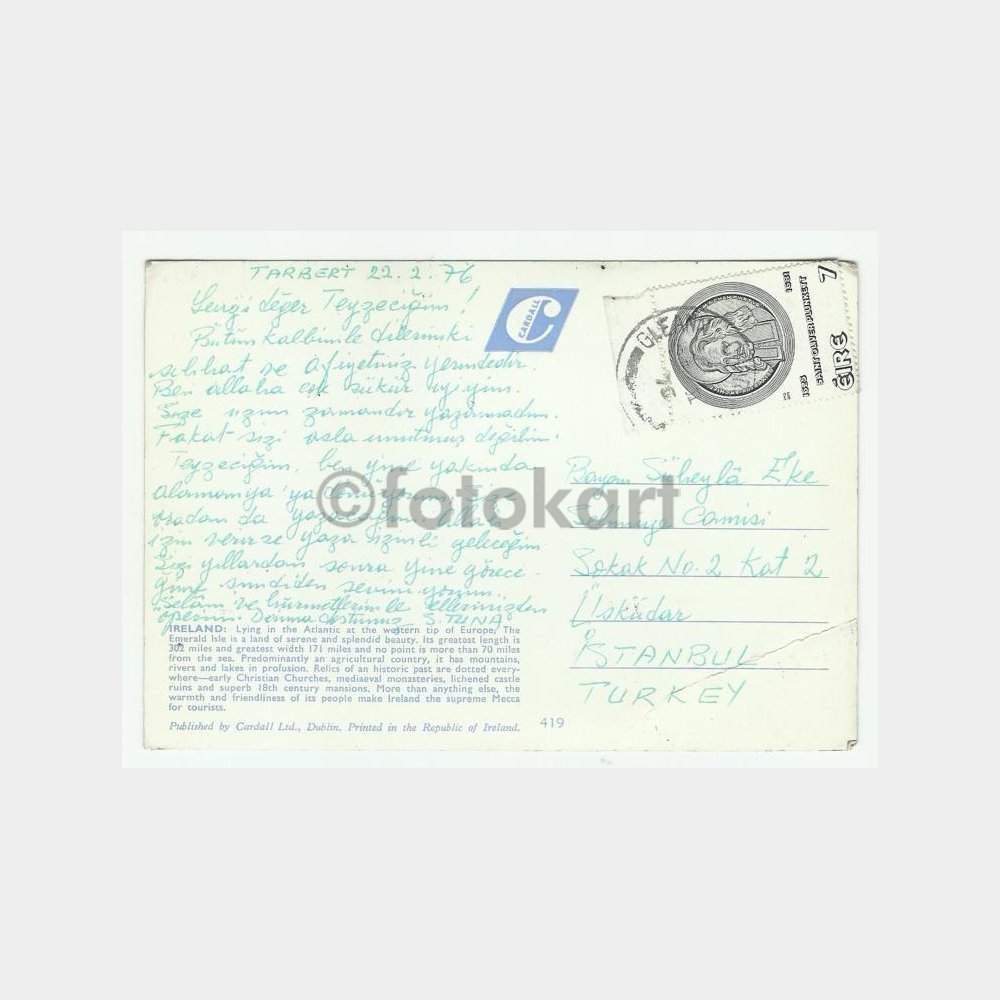 TARBERT 22.2.76
Sevgi değer Teyzeciğim!
Bütün kalbimle dilerimki
sıhhat ve afiyetiniz yerindedir.
Ben allaha çok şükür iyiyim.
Size uzun zamandır yazamadım.
Fakat sizi asla unutmuş değilim.
Teyzeciğim, ben yine yakında
Alamanya'ya
oradan da yazacağım Allah
izin verirse yaza izinli geleceğim
Sizi yıllardan sonra yine görece-
ğime şimdiden seviniyorum.
Selâm ve hürmetlerimle ellerinizden
öperim. S. TUNA
CARDALL
GLE
ÉIRE
7
SAINT OLIVER PLUNKETT
1625
1681
Bayan Süheylâ Eke
Camisi
Sokak No. 2 Kat 2
Üsküdar
İSTANBUL
TURKEY
IRELAND: Lying in the Atlantic at the western tip of Europe, The
Emerald Isle is a land of serene and splendid beauty. Its greatest length is
302 miles and greatest width 171 miles and no point is more than 70 miles
from the sea. Predominantly an agricultural country, it has mountains,
rivers and lakes in profusion. Relics of an historic past are dotted every-
where—early Christian Churches, mediaeval monasteries, lichened castle
ruins and superb 18th century mansions. More than anything else, the
warmth and friendliness of its people make Ireland the supreme Mecca
for tourists.
Published by Cardall Ltd., Dublin. Printed in the Republic of Ireland.
419
©fotokart